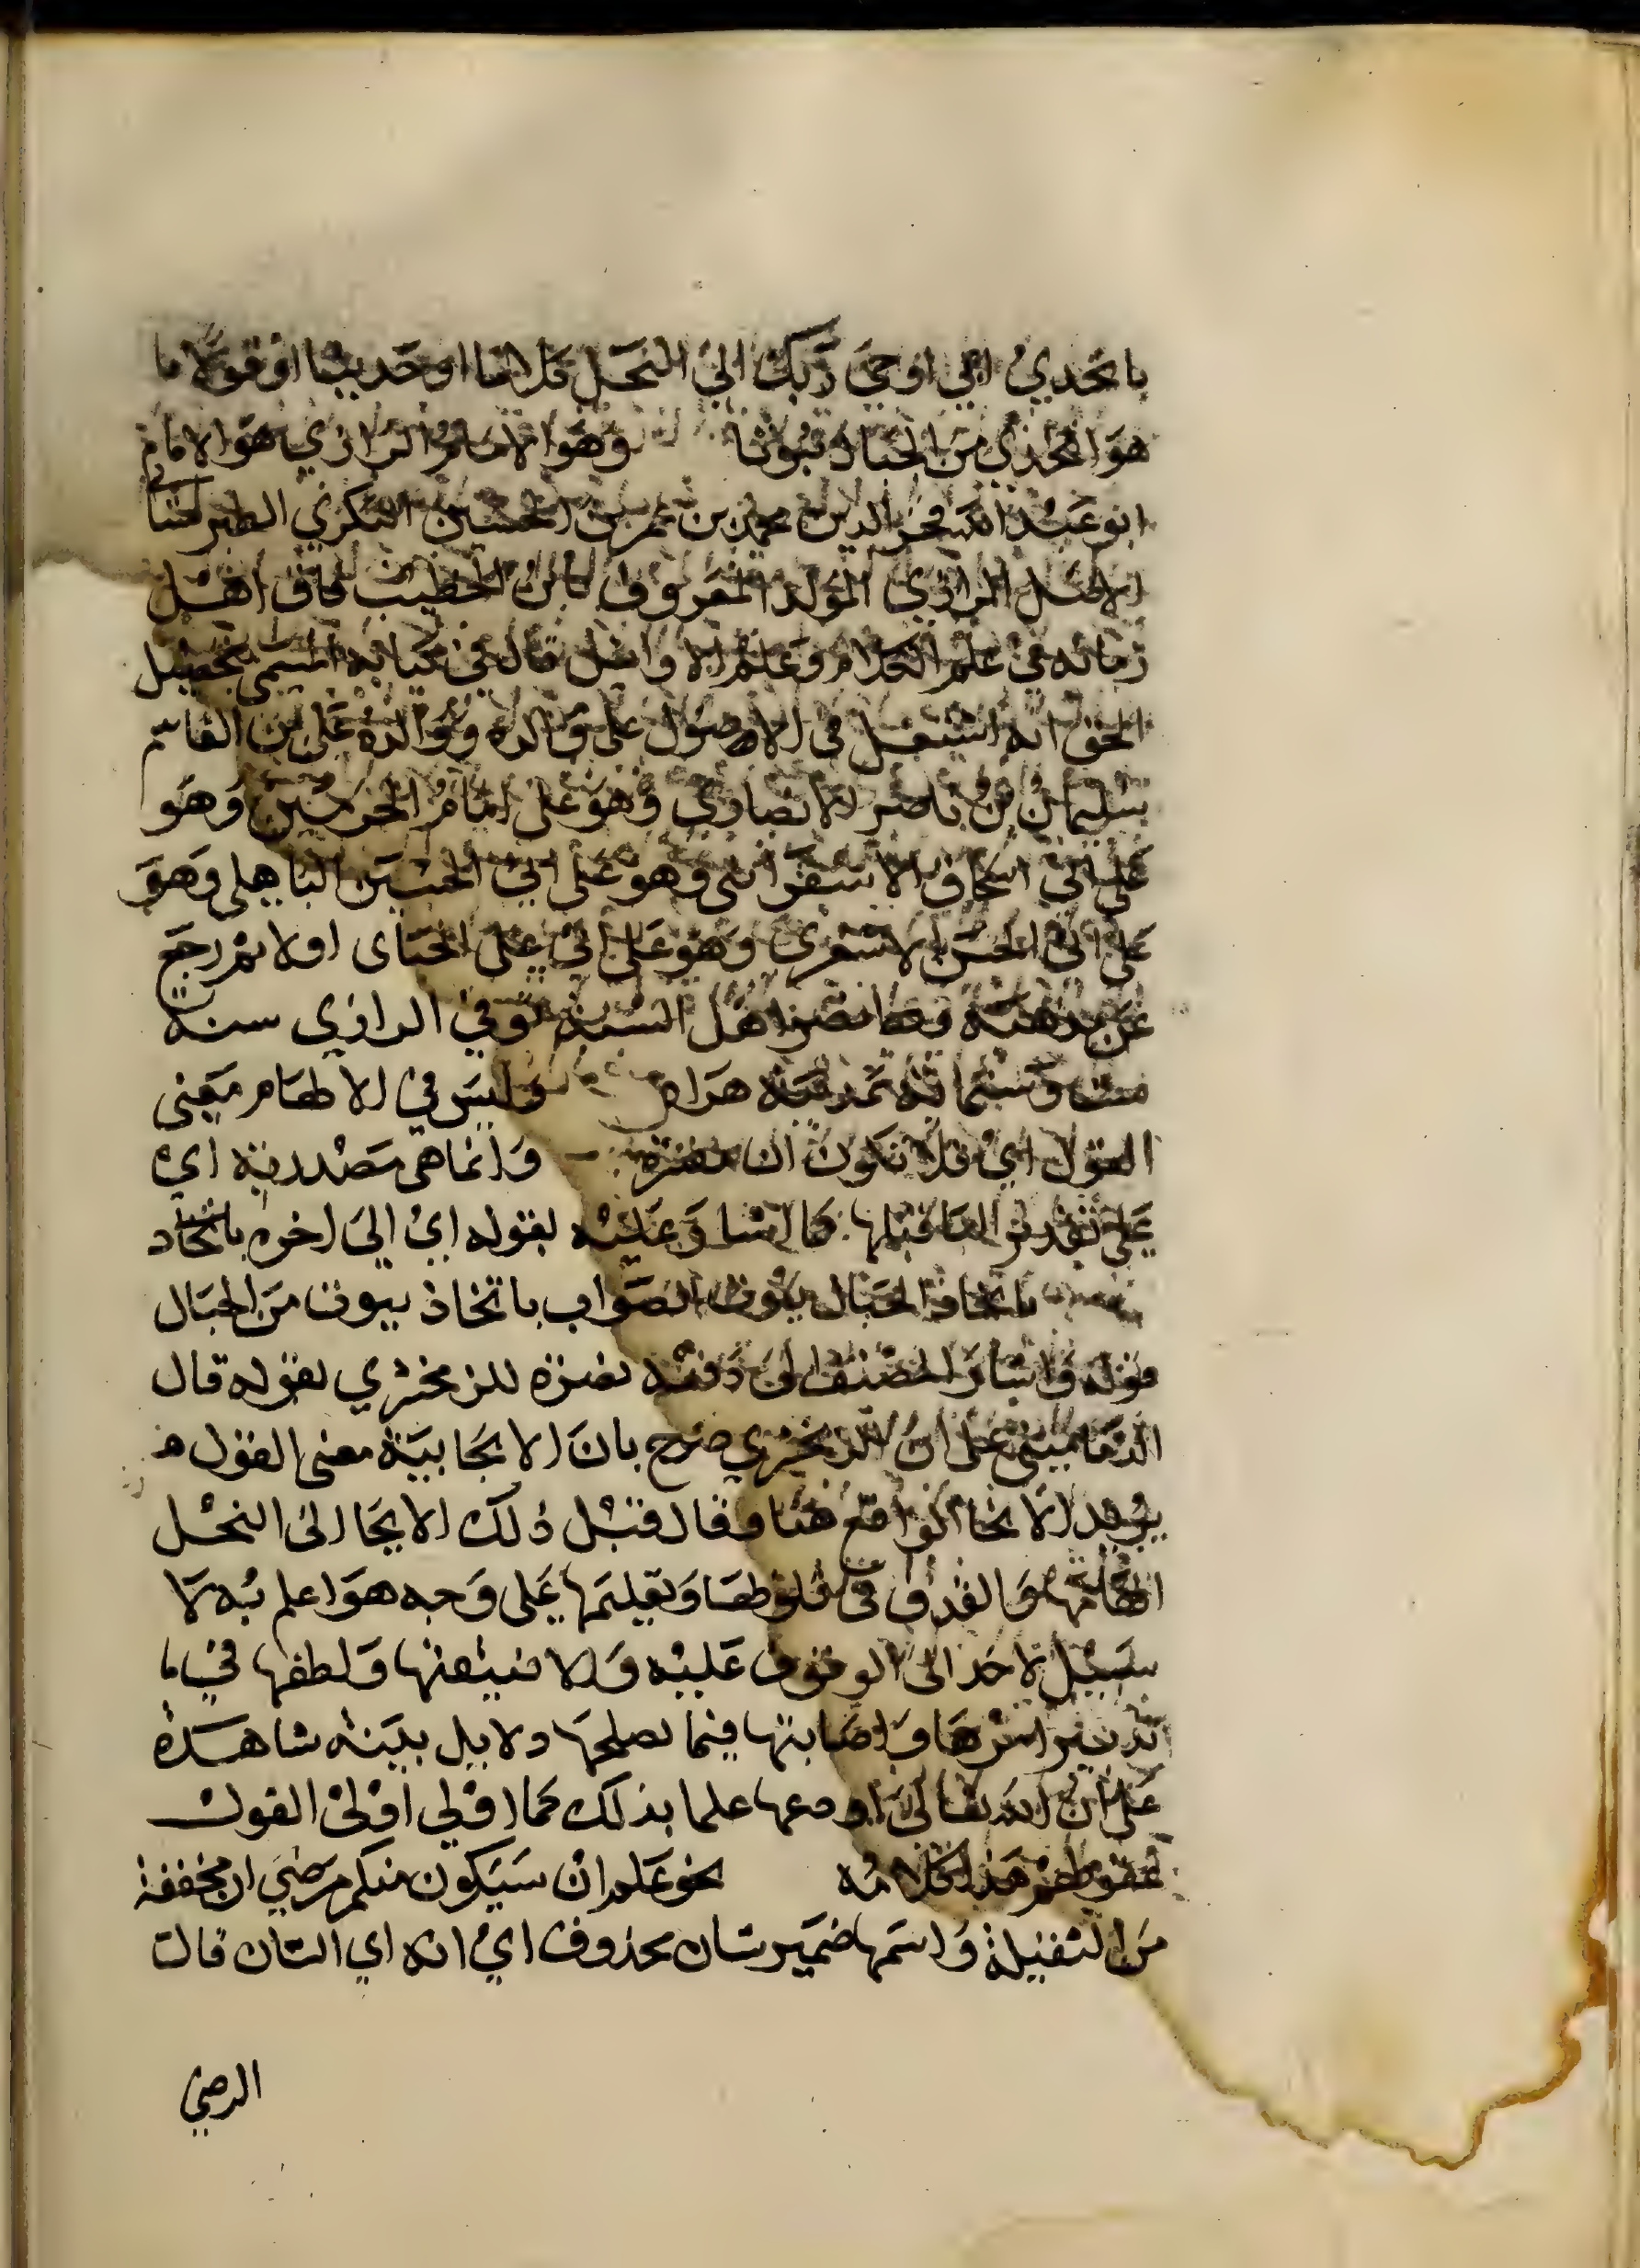 باتخدي اي اوحى ربك الى النحل كلاما او حديثا او قوله ما
هو اتخذي من الجبال بيوتا وهو الامام الرازي هو الامام
ابو عبد الله فخر الدين محمد بن عمر بن الحسين البكري الطبرستاني
الاصل الرازي المولد المعروف بابن الخطيب فاق اهل
زمانه في علم الكلام وعلم الاوائل قال في كتابه المسمى بتحصيل
الحق انه اشتغل في الاصول على والده ووالده على بن القاسم
سليمان بن ناصر الانصاري وهو على امام الحرمين وهو
على ابي اسحاق الاسفرائني وهو على ابي الحسين الباهلي وهو
على ابي الحسن الاشعري وهو على ابي علي الجباى اولا ثم رجع
عن مذهبه ونصر اهل السنة توفي الرازي سنة
ست وستمائة بمدينة هراه وليس في الالهام معنى
القول اي فلا تكون ان مفسرة وانما هي مصدرية اي
على تقدير الباء قبلها كما اشار عليه بقوله اي الى اخره باتخاد
باتخاذ الجبال بيوتا الصواب باتخاذ بيوت من الجبال
قوله واشار المصنف الى دفعه نصرة للزمخشري بقوله قال
الدماميني على ان الزمخشري صرح بان الايجابية معنى القول
يريد الايحا الواقع هنا وقال قبل ذلك الايحا الى النحل
الهامها والقذف في قلوبها وتعليمها على وجه هو اعلم به لا
سبيل لاحد الى الوقوف عليه والا فنيقتها ولطفها في ما
تدبير امرها واصابتها فيما يصلحها دلايل بينة شاهدة
على ان الله تعالى اودعها علما بذلك كما اولى اولى القول
عقولهم هذا كلامه نحو علم ان سيكون منكم مرضى ان مخففة
من الثقيلة واسمها ضمير شان محذوف اي انه اي الشان قالت
الرضي